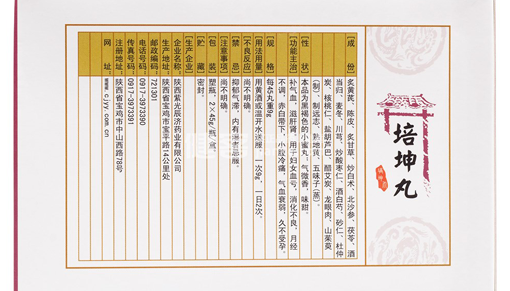 培坤丸
[成 份] 炙黄芪、陈皮、炙甘草、炒白术、北沙参、茯苓、酒
当归、麦冬、川芎、炒酸枣仁、酒白芍、砂仁、杜仲
炭、核桃仁、盐胡芦巴、醋艾炭、龙眼肉、山茱萸
(制)、制远志、熟地黄、五味子(蒸)。
[性 状] 本品为黑褐色的小蜜丸；气微香，味甜。
[功能主治] 补气血，滋肝肾。用于妇女血亏，消化不良，月经
不调，赤白带下，小腹冷痛，气血衰弱，久不受孕。
[规 格] 每45丸重9g
[用法用量] 用黄酒或温开水送服。一次9g，一日2次。
[不良反应] 尚不明确。
[禁 忌] 抑郁气滞，内有湿者忌服
[注意事项] 尚不明确。
[包 装] 塑瓶，2×45g
[贮 藏] 密封。
[生产企业]
企业名称：陕西紫光辰济药业有限公司
生产地址：陕西省宝鸡市宝平路14公里处
邮政编码：721301
电话号码：0917-3973390
传真号码：0917-3973391
注册地址：陕西省宝鸡市中山西路78号
网 址：www.cjyy.com.cn